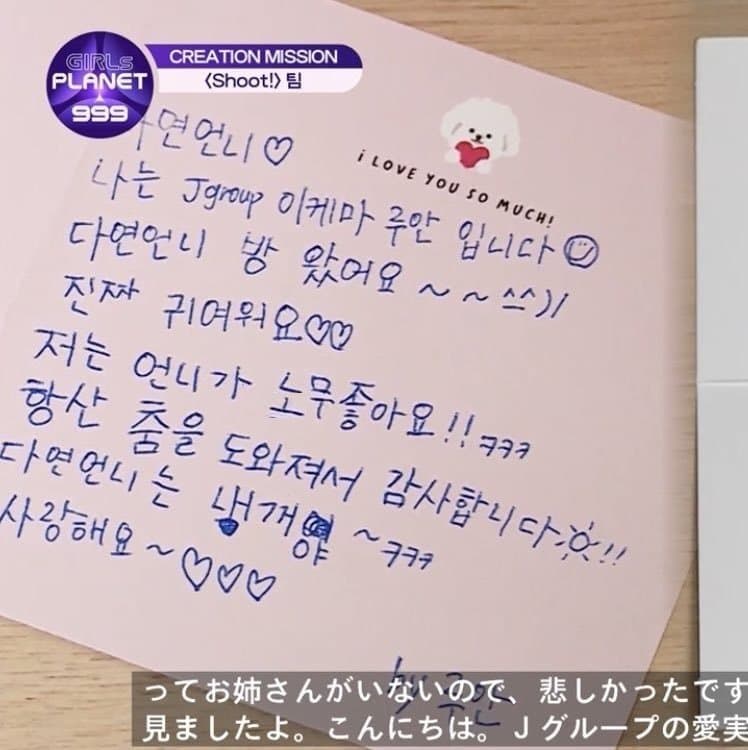 GIRLS
PLANET
999
CREATION MISSION
〈Shoot!〉 팀
연언니♡
i LOVE YOU SO MUCH!
나는 Jgroup 이케마 루안 입니다☺
다연언니 방 왔어요 ~ ~ ^^)/
진짜 귀여워요♡♡
저는 언니가 노무좋아요!! ㅋㅋㅋ
항산 춤을 도와져서 감사합니다☼!!
다연언니는 ~ㅋㅋㅋ
사랑해요~♡♡♡
by 루안
ってお姉さんがいないので、悲しかったです
見ましたよ。こんにちは。Jグループの愛実